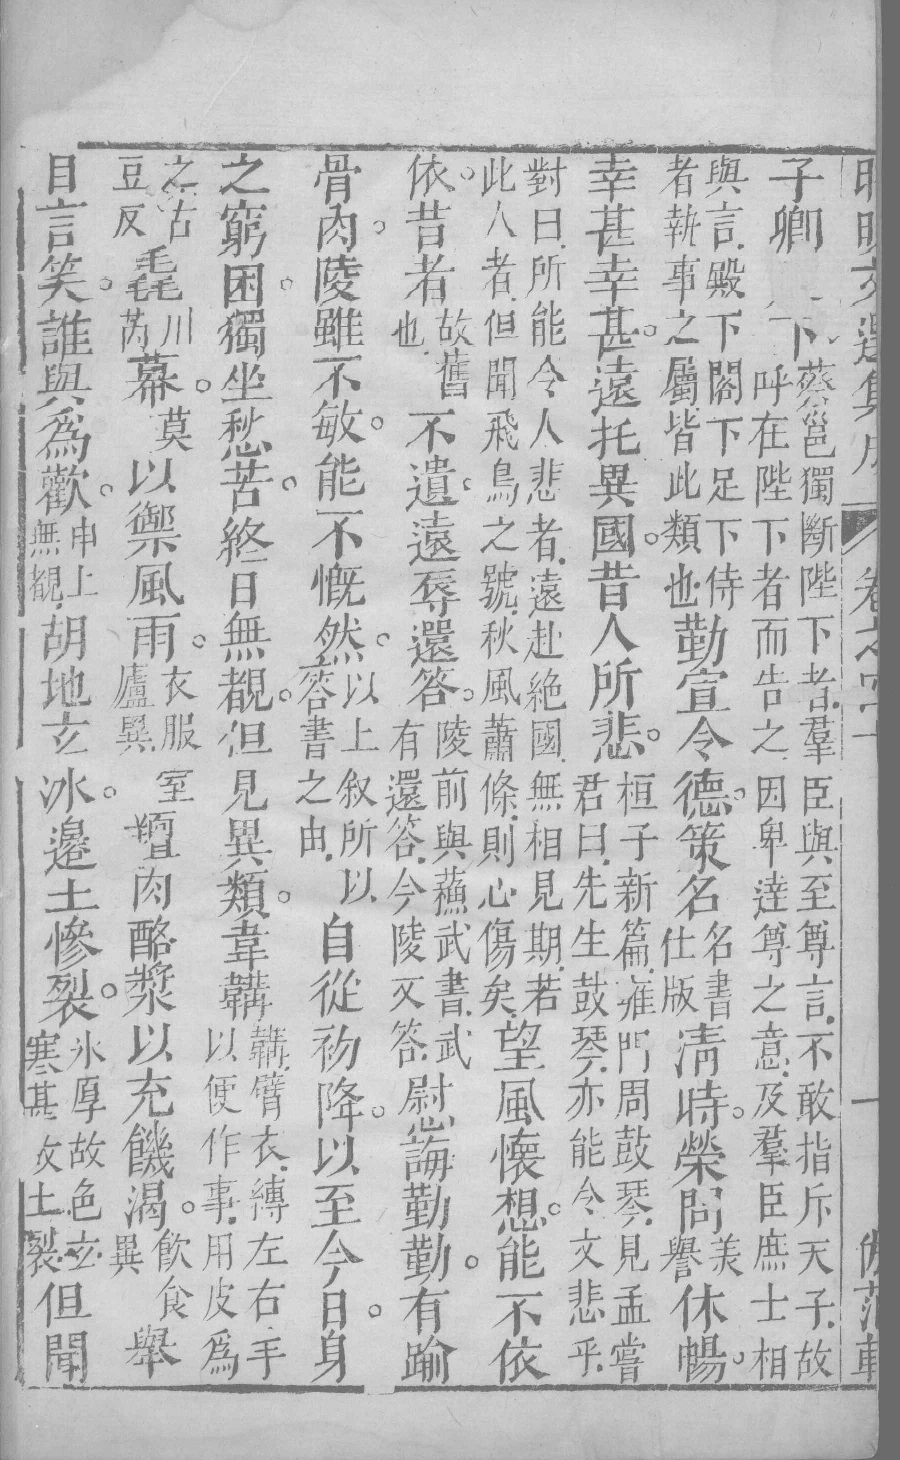 昭明文選集成 卷之 一
子卿下蔡邕獨斷陛下者.羣臣與至尊言.不敢指斥天子.故呼在陛下者而告之因卑達尊之意.及羣臣庶士相
與言.殿下閣下足下侍者執事之屬.皆此類也勤宣令德。策名名書仕版清時。榮問美譽休暢。
幸甚幸甚。遠托異國。昔人所悲。桓子新篇.雍門周鼓琴.見孟嘗君曰.先生鼓琴.亦能令文悲乎.
對曰.所能令人悲者.遠赴絕國.無相見期.若此人者.但聞飛鳥之號.秋風蕭條.則心傷矣.望風懷想。能不依
依。昔者故舊也不遺。遠辱還答。陵前與蘇武書.武有還答.今陵又答.慰誨勤勤。有踰
骨肉。陵雖不敏。能不慨然。以上叙所以答書之由.自從初降。以至今日。身
之窮困。獨坐愁苦。終日無覩。但見異類。韋韝韝.臂衣.縛左右手以便作事.用皮爲
之古豆反毳川芮幕。莫以禦風雨。衣服室廬異羶肉酪漿以充饑渴。飲食異舉
目言笑。誰與爲歡。申上無覩.胡地玄冰。邊土慘裂。氷厚故色玄.寒甚故土裂.但聞